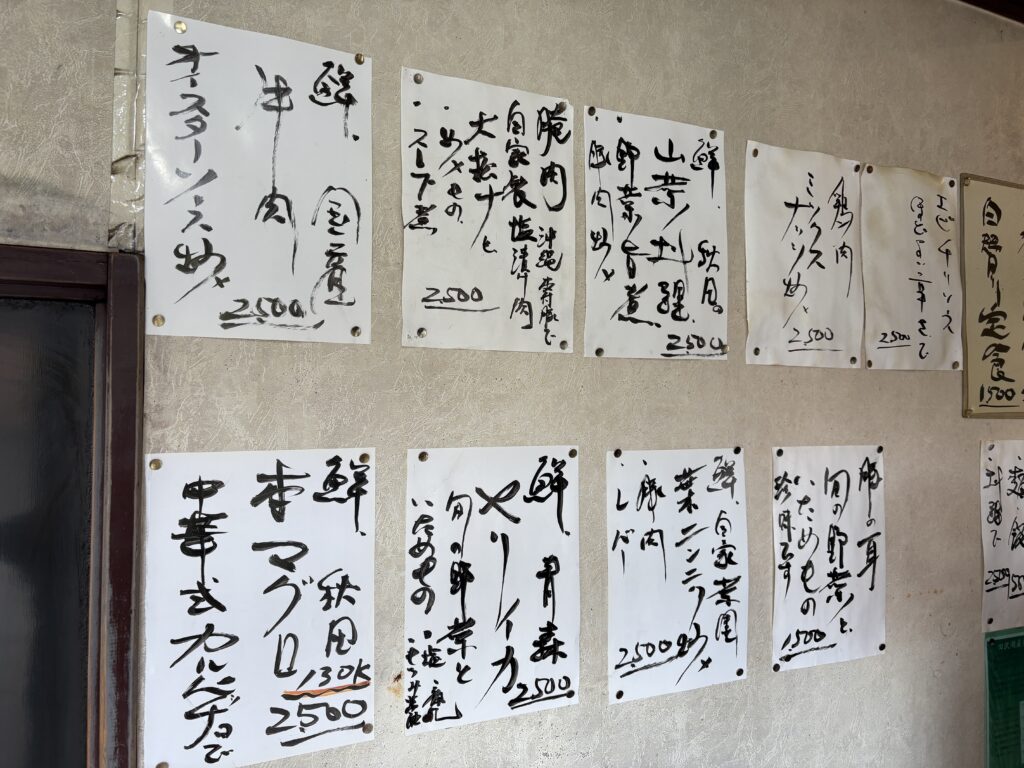 鮮、国産
牛肉
オースターソース炒メ
2500
腕肉 沖縄
自家製塩漬肉
大根ナと
スープ煮
2500
鮮、秋田
山菜ノ土鍋
野菜ノ旨煮
豚肉炒メ
2500
鶏肉
ミックス
ナッツ炒メ
2500
エビチリソース
2500
定食
1500
鮮、秋田
本マグロ
130K
2500
中華式カルパッチョで
鮮、青森
ヤリイカ
旬の野菜と
いためもの
2500
鮮、自家菜園
葉ニンニク炒メ
・豚肉
・レバー
2500
豚の耳
旬の野菜と、
いためもの
珍味です
1500
土鍋で
2500